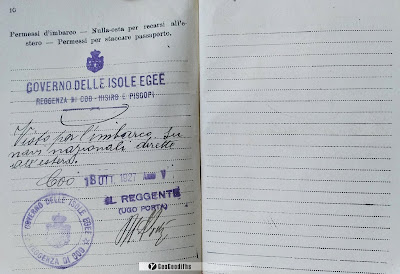 10
Permessi d'imbarco — Nulla-osta per recarsi all'e-
stero — Permessi per staccare passaporto.
GOVERNO DELLE ISOLE EGEE
REGGENZA DI COO - NISIRO E PISCOPI
Visto per l'imbarco su
navi nazionali dirette
all'estero.
Coo 18 OTT. 1927 ANNO V
IL REGGENTE
(UGO PORTA)
GOVERNO DELLE ISOLE EGEE
REGGENZA DI COO
GeoGeodiths